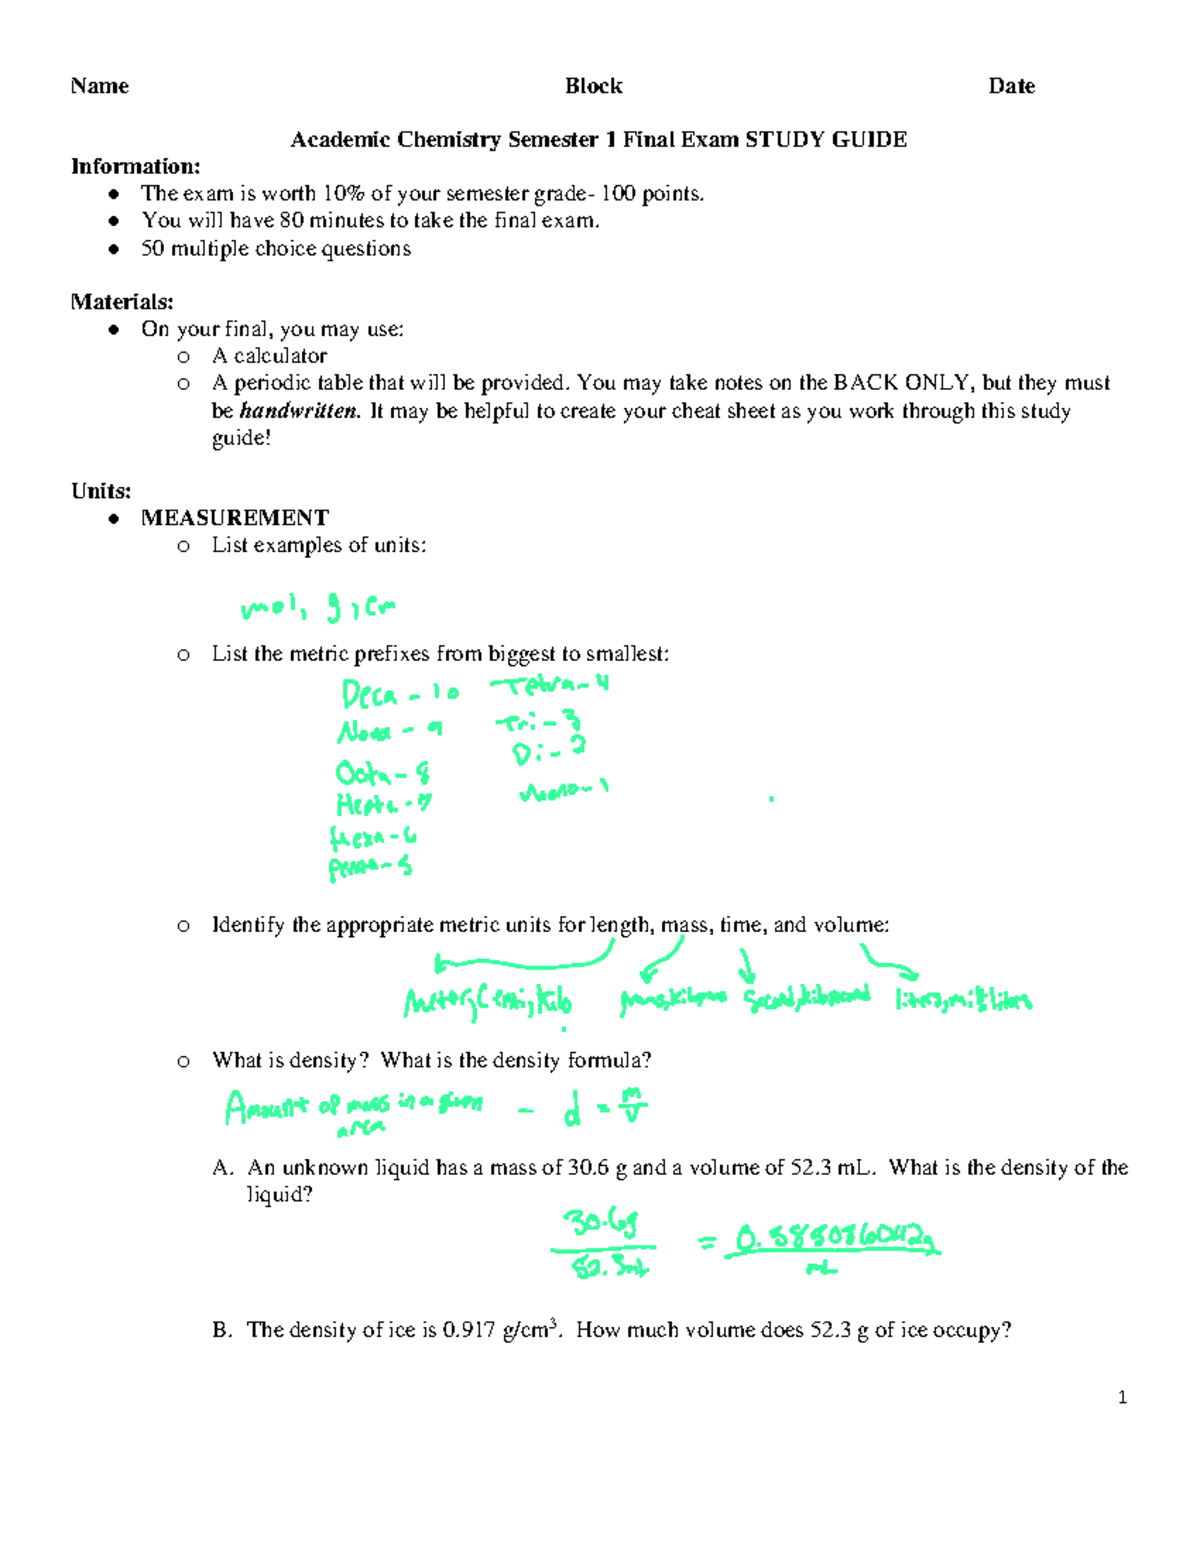 Name Block Date
Academic Chemistry Semester 1 Final Exam STUDY GUIDE
Information:
● The exam is worth 10% of your semester grade- 100 points.
● You will have 80 minutes to take the final exam.
● 50 multiple choice questions
Materials:
● On your final, you may use:
o A calculator
o A periodic table that will be provided. You may take notes on the BACK ONLY, but they must
be handwritten. It may be helpful to create your cheat sheet as you work through this study
guide!
Units:
● MEASUREMENT
o List examples of units:
mol, g, cm
o List the metric prefixes from biggest to smallest:
Deca - 10 Tetra - 4
Nona - 9 Tri - 3
Di - 2
Octa - 8
Mono - 1
Hepta - 7
Hexa - 6
Penta - 5
o Identify the appropriate metric units for length, mass, time, and volume:
Meter, Centi, Kilo grams, kilograms Second, kilosecond liters, milliliters
o What is density? What is the density formula?
Amount of mass in a given - d = m/v
area
A. An unknown liquid has a mass of 30.6 g and a volume of 52.3 mL. What is the density of the
liquid?
30.6g
= 0.585086042g
52.3mL mL
B. The density of ice is 0.917 g/cm³. How much volume does 52.3 g of ice occupy?
1